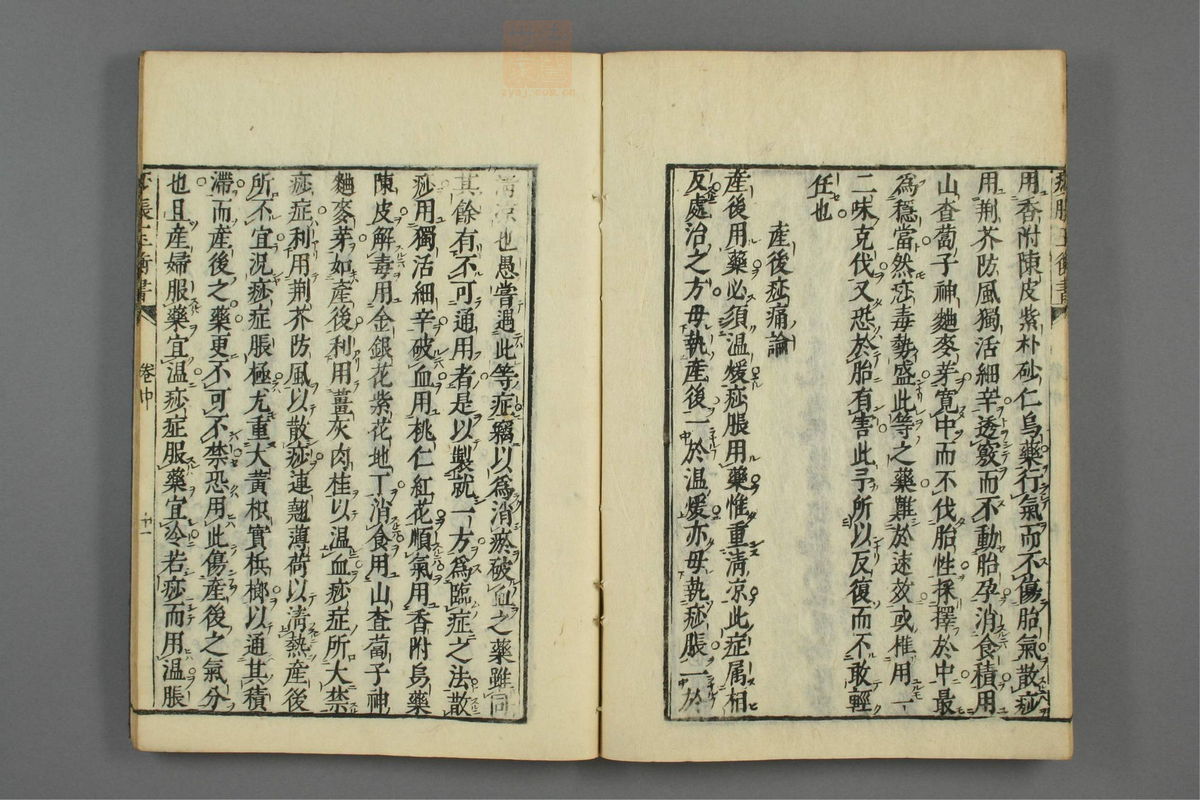 用香附陳皮紫朴砂仁烏藥行氣而不傷胎氣散痧
用荆芥防風獨活細辛透竅而不動胎孕消食積用
山查蔔子神麯麥芽寛中而不伐胎性採擇於中最
為穩當然痧毒勢盛此等之藥難於速效或推用一
二味克伐又恐於胎有害此予所以反復而不敢輕
任也
産後痧痛論
産後用藥必須温煖痧脹用藥惟重清凉此症属相
反處治之方毋執産後一於温煖亦毋執痧脹一於
清凉也愚嘗遇此等症輒以為消瘀破血之藥雖同
其餘有不可通用者是以製就一方為臨症之法散
痧用獨活細辛破血用桃仁紅花順氣用香附烏藥
陳皮解毒用金銀花紫花地丁消食用山査蔔子神
麯麥芽如産後利用薑灰肉桂以温血痧症所大禁
痧症利用荆芥防風以散痧連翹薄荷以清熱産後
所不宜況痧症脹極尤重大黃枳實梹榔以通其積
滯而産後之藥更不可不禁恐用此傷産後之氣分
也且産婦服藥宜温痧症服藥宜冷若痧而用温脹
痧脹玉衡書
卷中
十一
zysj.com.cn